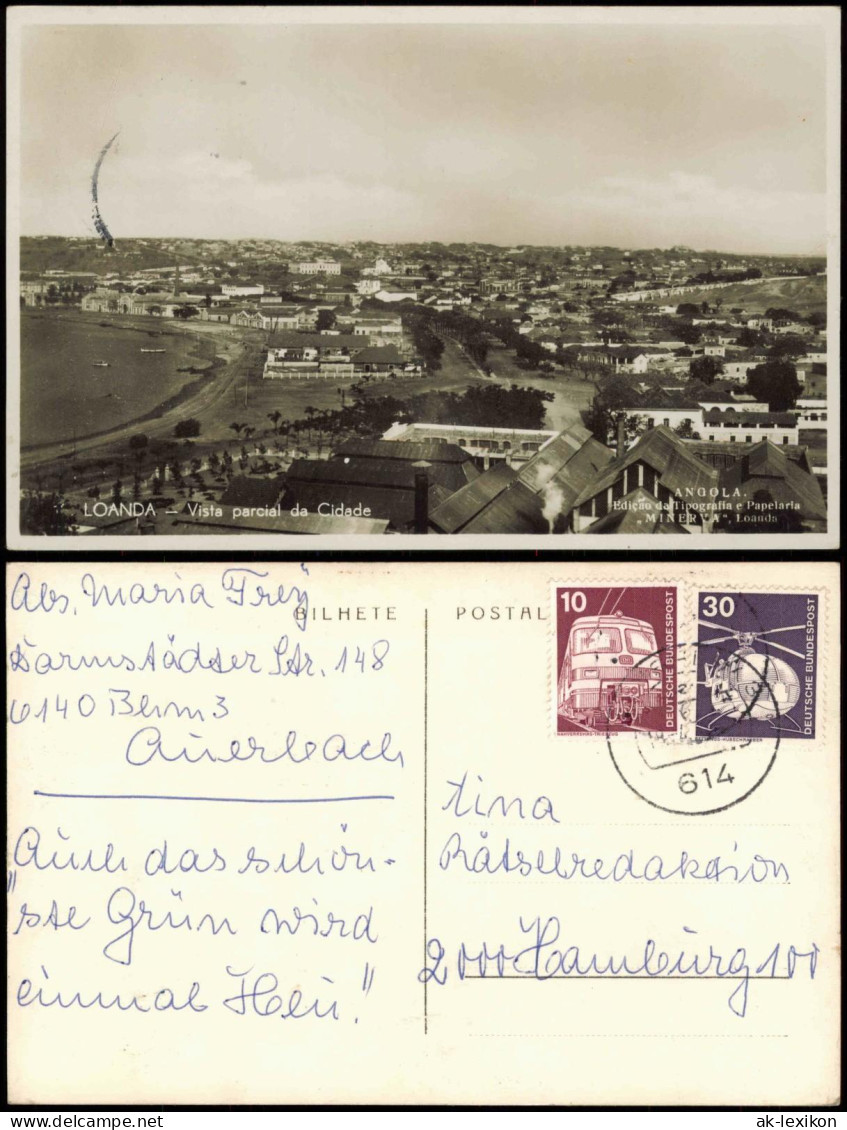 LOANDA – Vista parcial da Cidade
ANGOLA.
Edição da Tipografia e Papelaria
„MINERVA", Loanda
Abs. Maria Frey
Darmstädter Str. 148
6140 Bensh. 3
Auerbach
BILHETE POSTAL
10
DEUTSCHE BUNDESPOST
30
DEUTSCHE BUNDESPOST
614
„Auch das schön-
ste Grün wird
einmal Heu!"
tina
Rätselredaktion
2000 Hamburg 100
ak-lexikon